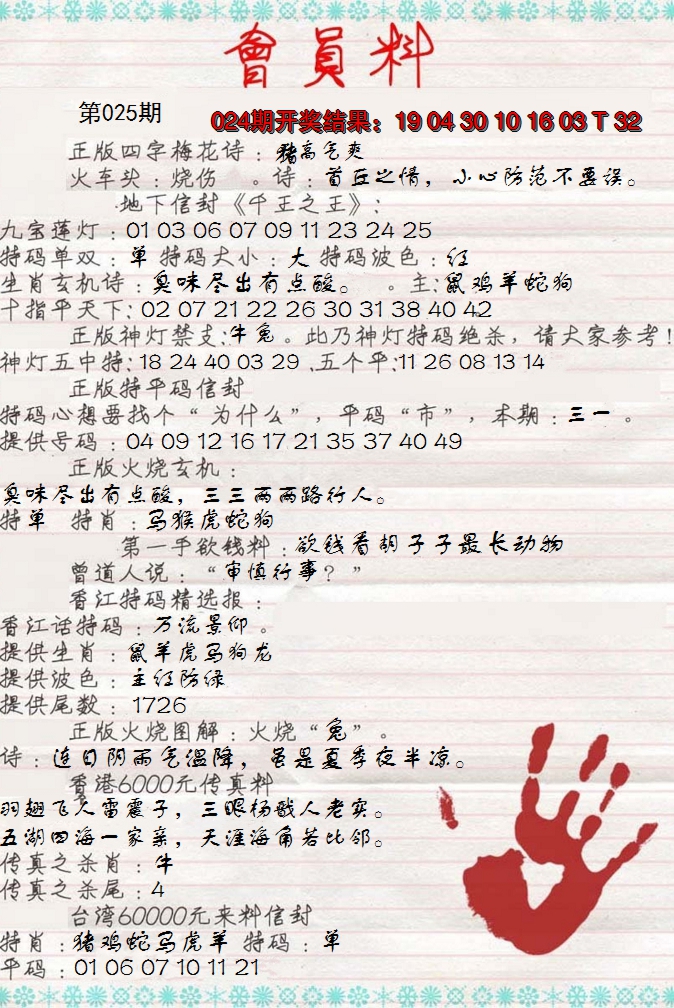 會員料
第025期
024期开奖结果：19 04 30 10 16 03 T 32
正版四字梅花诗：猪高气爽
火车头：烧伤 。诗：首丘之情，小心防范不要误。
地下信封《千王之王》：
九宝莲灯：01 03 06 07 09 11 23 24 25
特码单双：单 特码大小：大 特码波色：红
生肖玄机诗：臭味尽出有点酸。 。主：鼠鸡羊蛇狗
十指平天下：02 07 21 22 26 30 31 38 40 42
正版神灯禁支：牛兔。此乃神灯特码绝杀，请大家参考！
神灯五中特：18 24 40 03 29 .五个平：11 26 08 13 14
正版特平码信封
特码心想要找个“为什么”，平码“市”，本期：三一 。
提供号码：04 09 12 16 17 21 35 37 40 49
正版火烧玄机：
臭味尽出有点酸，三三两两路行人。
特单 特肖：马猴虎蛇狗
第一手欲钱料：欲钱看胡子子最长动物
曾道人说：“审慎行事？”
香江特码精选报：
香江话特码：万流景仰 。
提供生肖：鼠羊虎马狗龙
提供波色：主红防绿
提供尾数：1726
正版火烧图解：火烧“兔”。
诗：连日阴雨气温降，虽是夏季夜半凉。
香港6000元传真料
羽翅飞人雷震子，三眼杨戬人老实。
五湖四海一家亲，天涯海角若比邻。
传真之杀肖：牛
传真之杀尾：4
台湾60000元来料信封
特肖：猪鸡蛇马虎羊 特码：单
平码：01 06 07 10 11 21